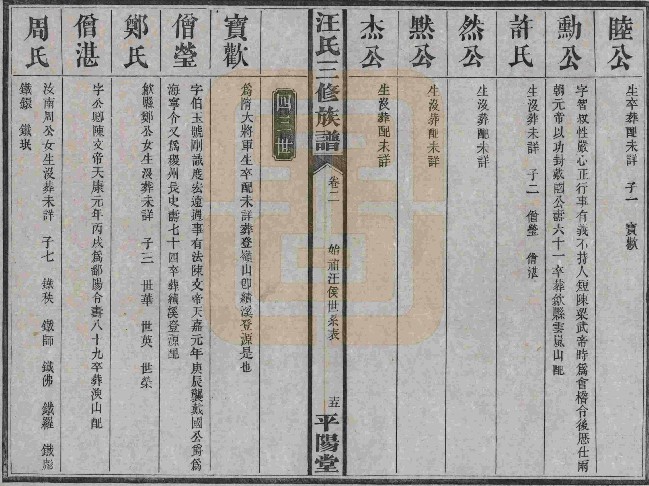 睦公
生卒葬配未詳 子一 寶歡
勳公
字智叔性嚴心正行事有義不持人短陳粟武帝時爲會稽令後歷仕兩
朝元帝以功封戴國公壽六十一卒葬歙縣雲嵐山配
許氏
生沒葬未詳 子二 僧瑩 僧湛
然公
生沒葬配未詳
黙公
生沒葬配未詳
杰公
生沒葬配未詳
汪氏三修族譜
卷二
始祖汪侯世系表
十五
平陽堂
四二世
寶歡
爲隋大將軍生卒配未詳葬登嶺山卽績溪登源是也
僧瑩
字伯玉號剛識度宏遠週事有法陳文帝天嘉元年庚辰襲戴國公爵爲
海寧介又爲稷州長史壽七十四卒葬績溪登源配
鄭氏
歙縣鄭公女生沒葬未詳 子三 世華 世英 世榮
僧湛
字公聰陳文帝天康元年丙戌爲鄱陽令壽八十九卒葬湏山配
周氏
汝南周公女生沒葬未詳 子七 鐵秩 鐵師 鐵佛 鐵羅 鐵彪
鐵鑁 鐵珉